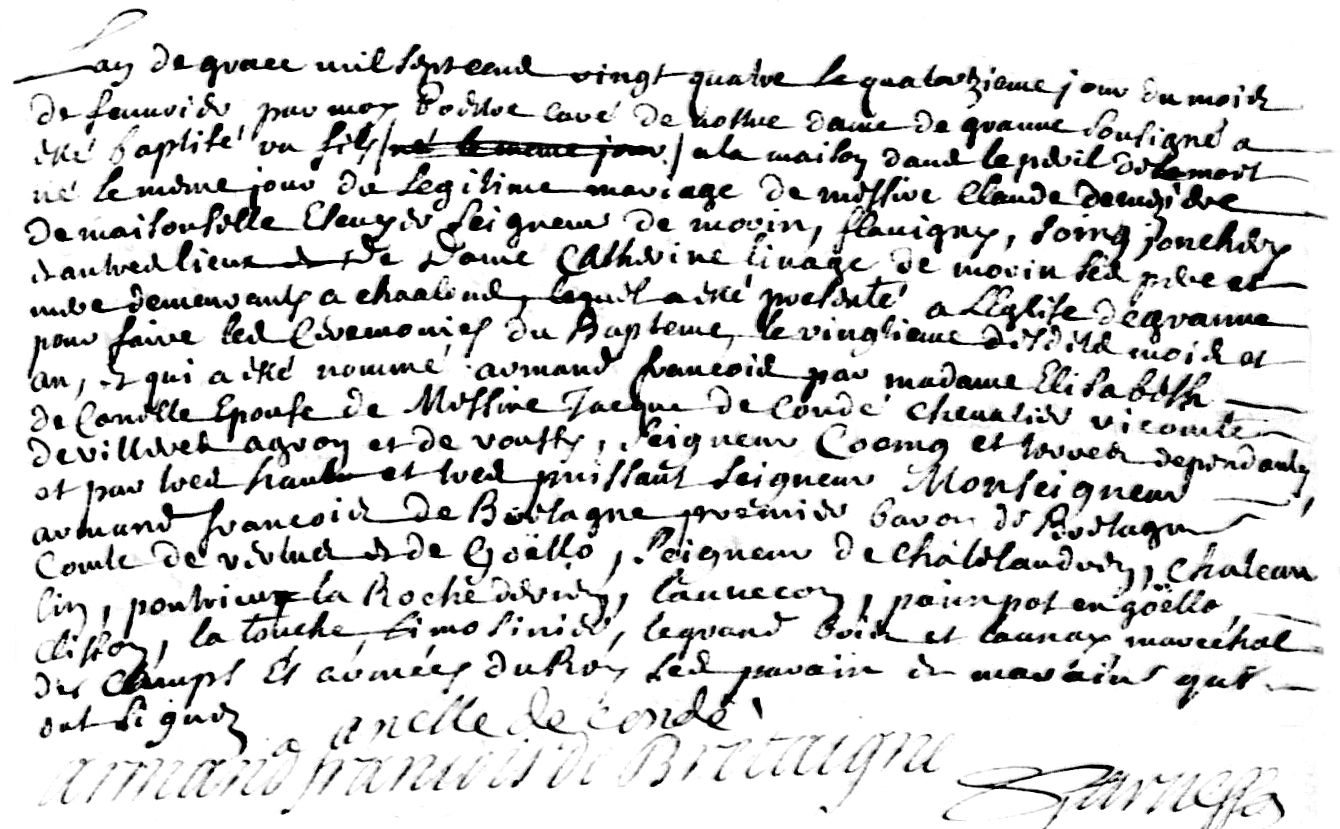 Lan de grace mil sept cent vingt quatre le quatorzieme jour du mois
de feuvrier par moy Prêtre curé de nostre dame de granne soussigné a
été baptisé un fils (né le meme jour) a la maison dans le péril de la mort
né le même jour du legitime mariage de messire Claude
de maisonselle Escuyer Seigneur de morin, flauigny, Soing jonchery
et autres lieux et de Dame Catherine linage de morin ses pere et
mere demeurants a chaalons, lequel a été présenté a L'Eglise de granne
pour faire les Cérémonies du Baptême, le vingtieme desdits mois et
an, et qui a été nommé armand françois par madame Elisabeth
de Canelle Epouse de Messire Jacque de Condé chevalier vicomte
de villers agron et de Seigneur Coemy et terres dependantes,
et par tres haut et tres puissant Seigneur Monseigneur
armand françois de Bretagne premier baron de Bretagne
Comte de vertus et de Goëllo, Seigneur de châtelaudren, chateau
lin, pontrieux la Roche derien, lannecon, paimpol en goëllo,
clisson, la touche limosinière, le grand bois et launay maréchal
des Camps Et armées du Roy les parain et maraine qui
ont signez
anelle de condé
armand francois de Bretaigne